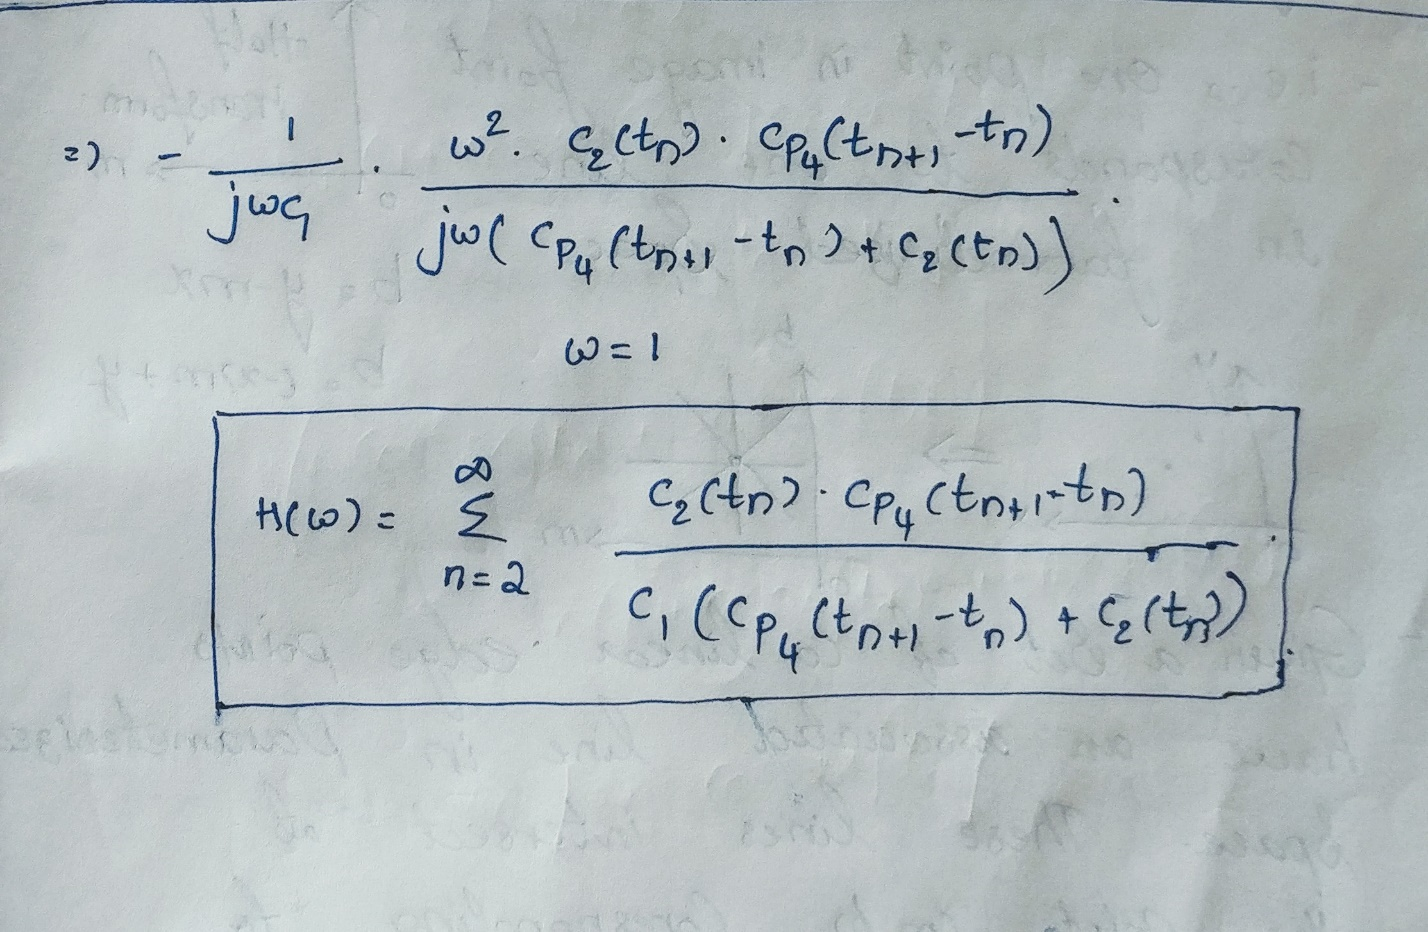 2) - 1/jωC₁ · ω² · C₂(tn) · Cp₄(tn+1 - tn) / jω(Cp₄(tn+1 - tn) + C₂(tn)) ·
ω = 1
H(ω) = ∞Σn=2 C₂(tn) · Cp₄(tn+1 - tn) / C₁(Cp₄(tn+1 - tn) + C₂(tn)) ·